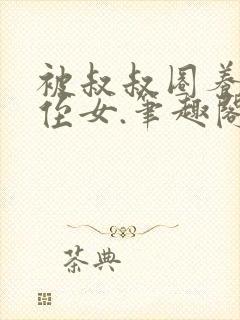 被叔叔圈养
侄女.笔趣阁
茶典